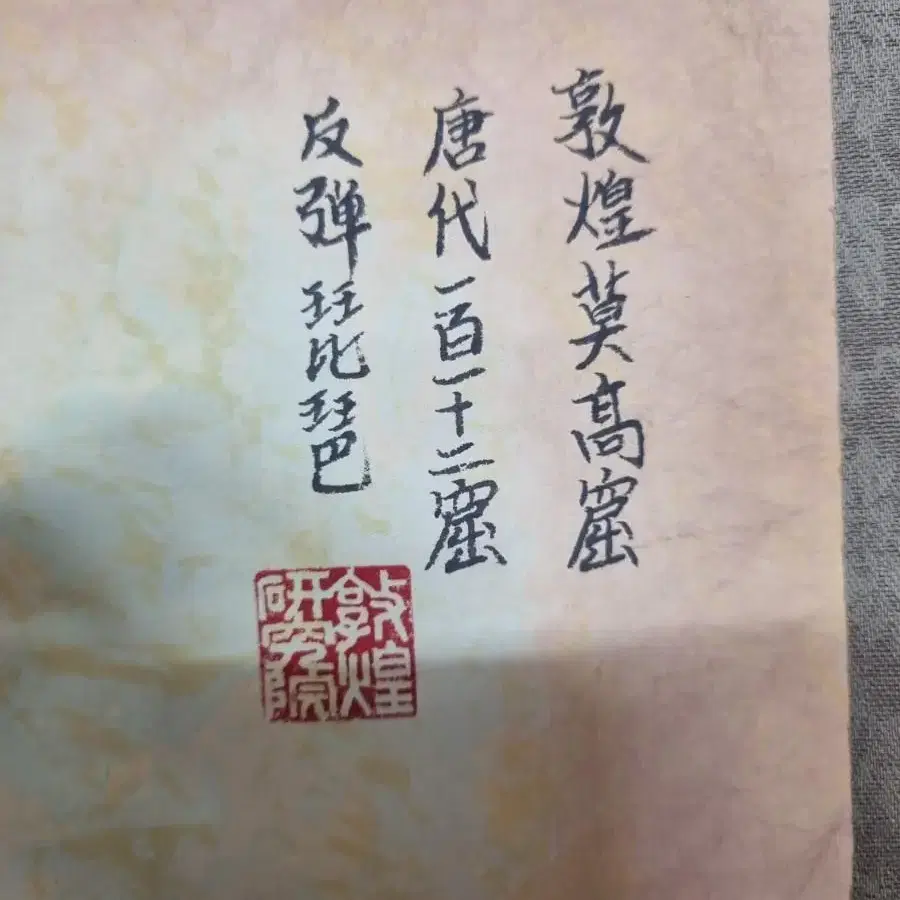 敦煌莫高窟
唐代一百一十二窟
反弹琵琶
敦煌
研究院